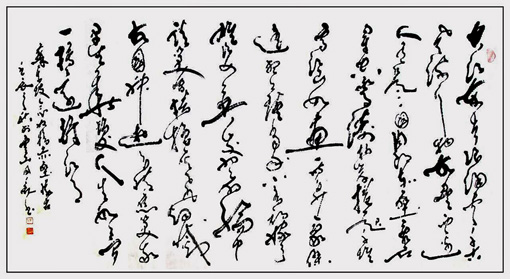 大江东去浪淘尽千
古风流人物故垒西边
人道是三国周郎赤壁乱石
穿空惊涛拍岸卷起千堆
雪江山如画一时多少豪杰
遥想公瑾当年小乔初嫁了
雄姿英发羽扇纶巾
谈笑间樯橹灰飞烟灭
故国神游多情应笑我
早生华发人生如
一樽还酹江月
苏东坡念奴娇赤壁怀古